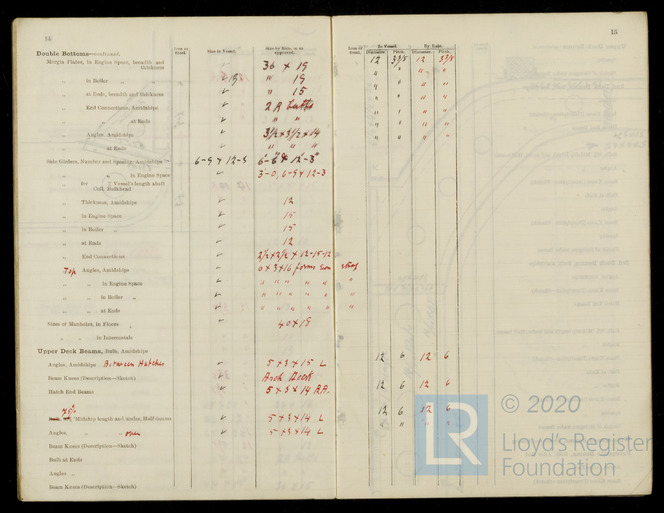 14
Double Bottoms—continued.
Item in Sheet.
Size by Vessel.
Size by Rule, or as approved.
Margin Plates, in Engine Space, breadth and thickness ✓ 36 × 19
„ in Boiler „ 19 „ 19
„ at Ends, breadth and thickness ✓ „ 15
„ End Connections, Amidships ✓ 2 A
„ „ at Ends ✓ „ „
„ Angles, Amidships ✓ 3½×3½×14
„ „ at Ends ✓ „ „ „
Side Girders, Number and Spacing, Amidships 6-9 × 12-3 6-6 & 12-3
„ „ in Engine Space 3-0, 6-9 × 12-3
„ for Vessel's length abaft Coll. Bulkhead
„ Thickness, Amidships ✓ 12
„ in Engine Space ✓ 15
„ in Boiler „ ✓ 15
„ at Ends ✓ 12
„ End Connections ✓ 2½×2½×12-15-12
„ Top Angles, Amidships ✓ 3×16 forms
„ „ in Engine Space ✓ „ „ „ „
„ „ in Boiler „ ✓ „ „ „ „
„ „ at Ends ✓ „ „ „ „
Sizes of Manholes, in Floors ✓ 40×19
„ „ in Intercostals
Upper Deck Beams, Bulb, Amidships
Angles, Amidships Between Hatches ✓ 5×3×15 L
Beam Knees (Description—Sketch) ✓ Deck
Hatch End Beams ✓ 5×3×14 B.A.
Midship length and under, Half-inches ✓ 5×3×14 L
Angles, „ „ over ✓ 5×3×14 L
Beam Knees (Description—Sketch)
Bulb at Ends
Angles „
Beam Knees (Description—Sketch)
15
Item in Sheet.
In Vessel. By Rule.
Diameter. Pitch. Diameter. Pitch.
12 3⅞ 12 3⅞
„ „ „ „
„ „ „ „
„ „ „ „
„ „ „ „
„ „ „ „
„ „ „ „
12 6 12 6
12 6 12 6
12 6 12 6
„ „ „ „
© 2020
LR
Lloyd's Register
Foundation